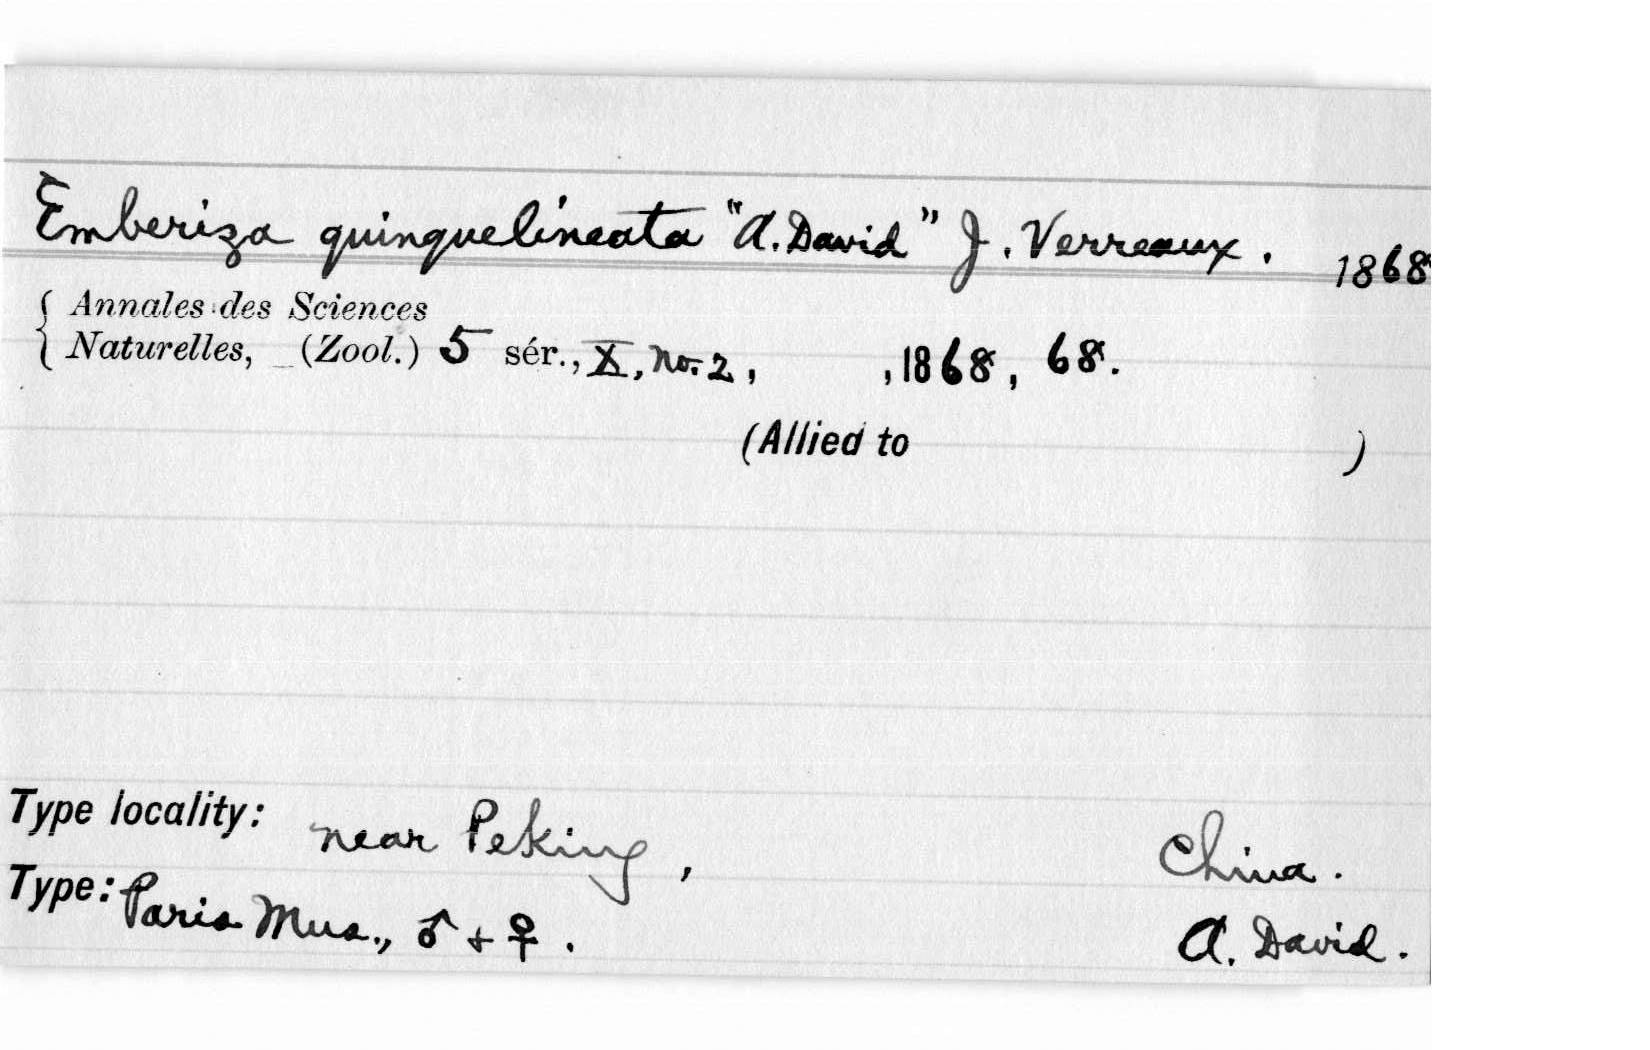 Emberiza quinquelineata "A. David" J. Verreaux. 1868
Annales des Sciences
Naturelles, (Zool.) 5 sér., X, No. 2, , 1868, 68.
(Allied to )
Type locality: near Peking, China.
Type: Paris Mus., ♂ + ♀. A. David.